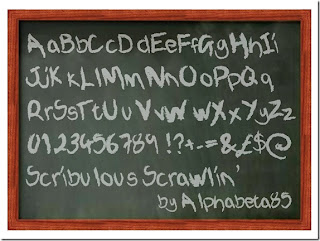 AaBbCcDdEeFfGgHhIi
JjKkLlMmNnOoPpQq
RrSsTtUuVvWwXxYyZz
0123456789 !?+-=&£$@
Scribulous Scrawlin'
by Alphabeta85